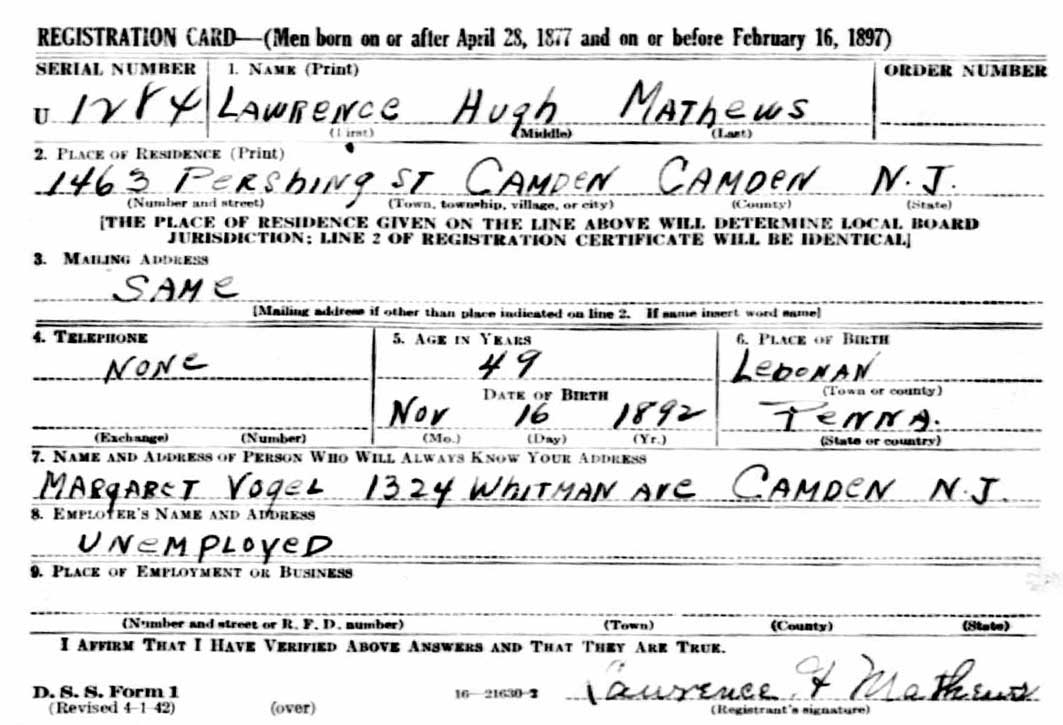 REGISTRATION CARD—(Men born on or after April 28, 1877 and on or before February 16, 1897)
SERIAL NUMBER 1. NAME (Print) ORDER NUMBER
U 1284 LAWRENCE HUGH MATHEWS
(First) (Middle) (Last)
2. PLACE OF RESIDENCE (Print)
1463 PERSHING ST CAMDEN CAMDEN N.J.
(Number and street) (Town, township, village, or city) (County) (State)
[THE PLACE OF RESIDENCE GIVEN ON THE LINE ABOVE WILL DETERMINE LOCAL BOARD
JURISDICTION; LINE 2 OF REGISTRATION CERTIFICATE WILL BE IDENTICAL]
3. MAILING ADDRESS
SAME
[Mailing address if other than place indicated on line 2. If same insert word same]
4. TELEPHONE 5. AGE IN YEARS 6. PLACE OF BIRTH
NONE 49 LEBONAN
DATE OF BIRTH (Town or county)
NOV 16 1892 PENNA.
(Exchange) (Number) (Mo.) (Day) (Yr.) (State or country)
7. NAME AND ADDRESS OF PERSON WHO WILL ALWAYS KNOW YOUR ADDRESS
MARGARET VOGEL 1324 WHITMAN AVE CAMDEN N.J.
8. EMPLOYER'S NAME AND ADDRESS
UNEMPLOYED
9. PLACE OF EMPLOYMENT OR BUSINESS
(Number and street or R. F. D. number) (Town) (County) (State)
I AFFIRM THAT I HAVE VERIFIED ABOVE ANSWERS AND THAT THEY ARE TRUE.
D. S. S. Form 1 16—21630-2 Lawrence H Mathews
(Revised 4-1-42) (over) (Registrant's signature)